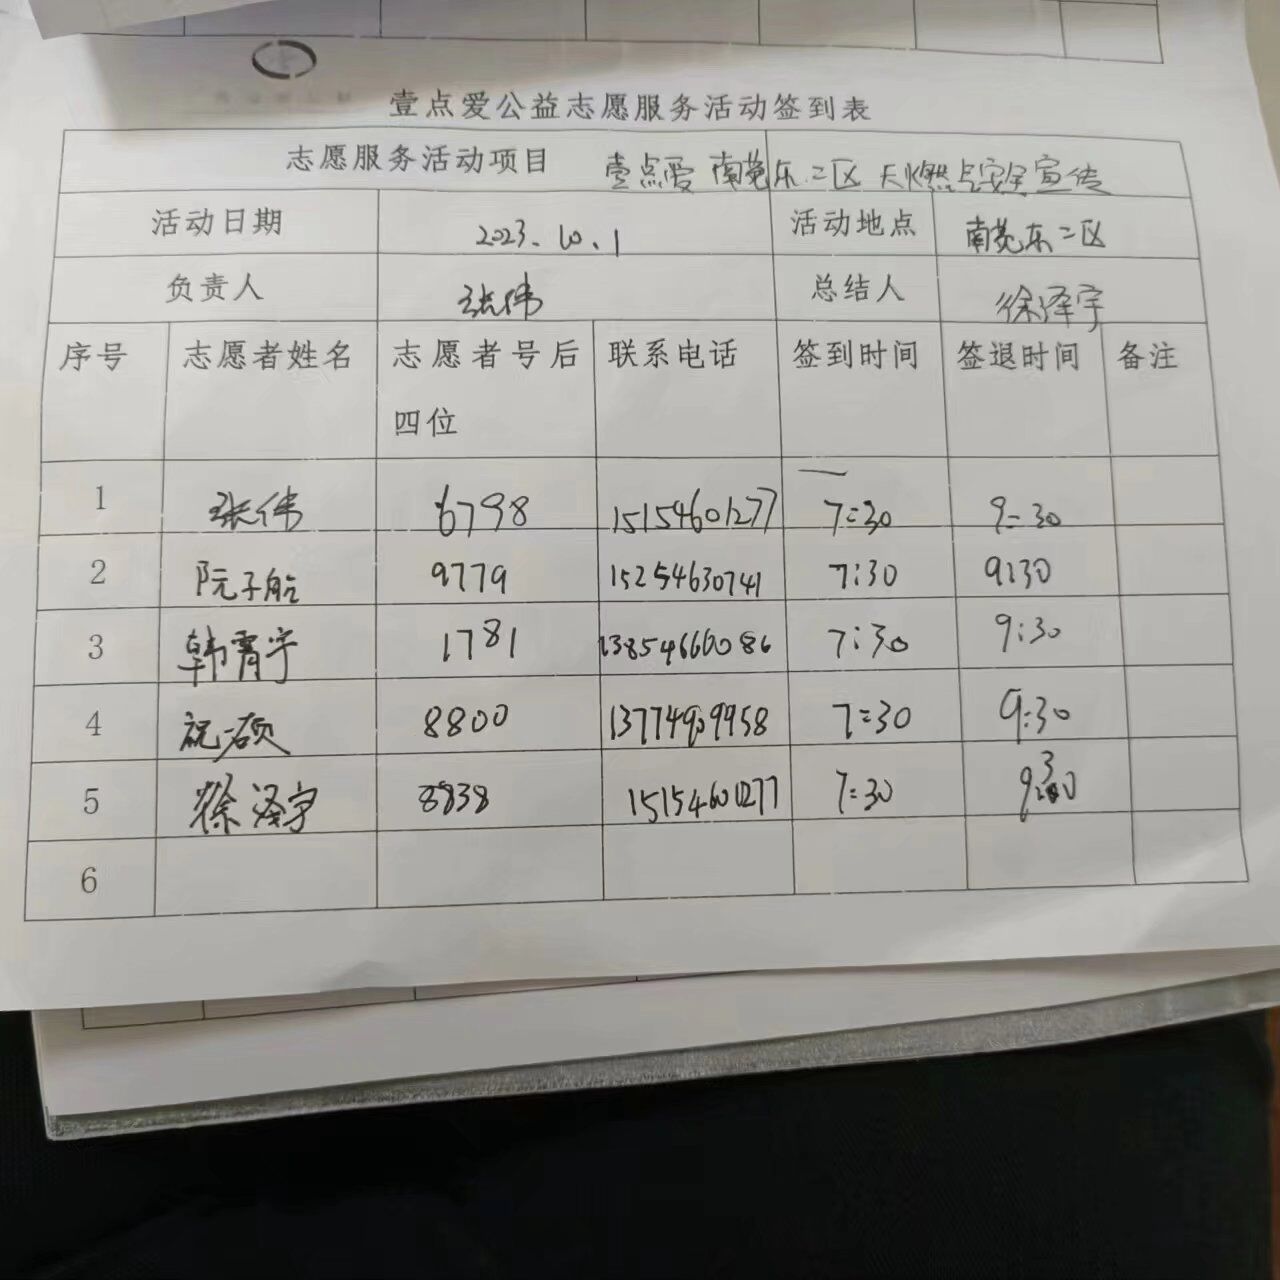 壹点爱公益志愿服务活动签到表
志愿服务活动项目 壹点爱 南苑东二区 天燃气安全宣传
活动日期 2023.10.1 活动地点 南苑东二区
负责人 张伟 总结人 徐泽宇
序号 志愿者姓名 志愿者号后四位 联系电话 签到时间 签退时间 备注
1 张伟 6798 15154601277 7:30 9:30
2 阮子航 9779 15254630741 7:30 9:30
3 韩霄宇 1781 13854666086 7:30 9:30
4 祝硕 8800 7:30 9:30
5 徐泽宇 8838 15154601277 7:30 9:30
6